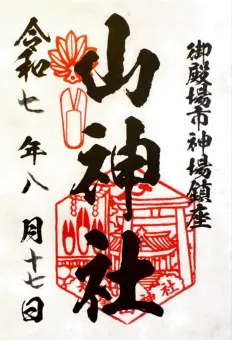 御殿場市神場鎮座
山神社
令和七年八月十七日